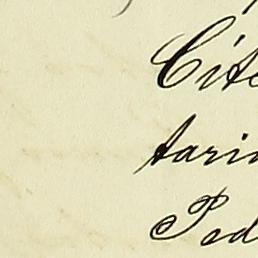 Cite
taria
Ped